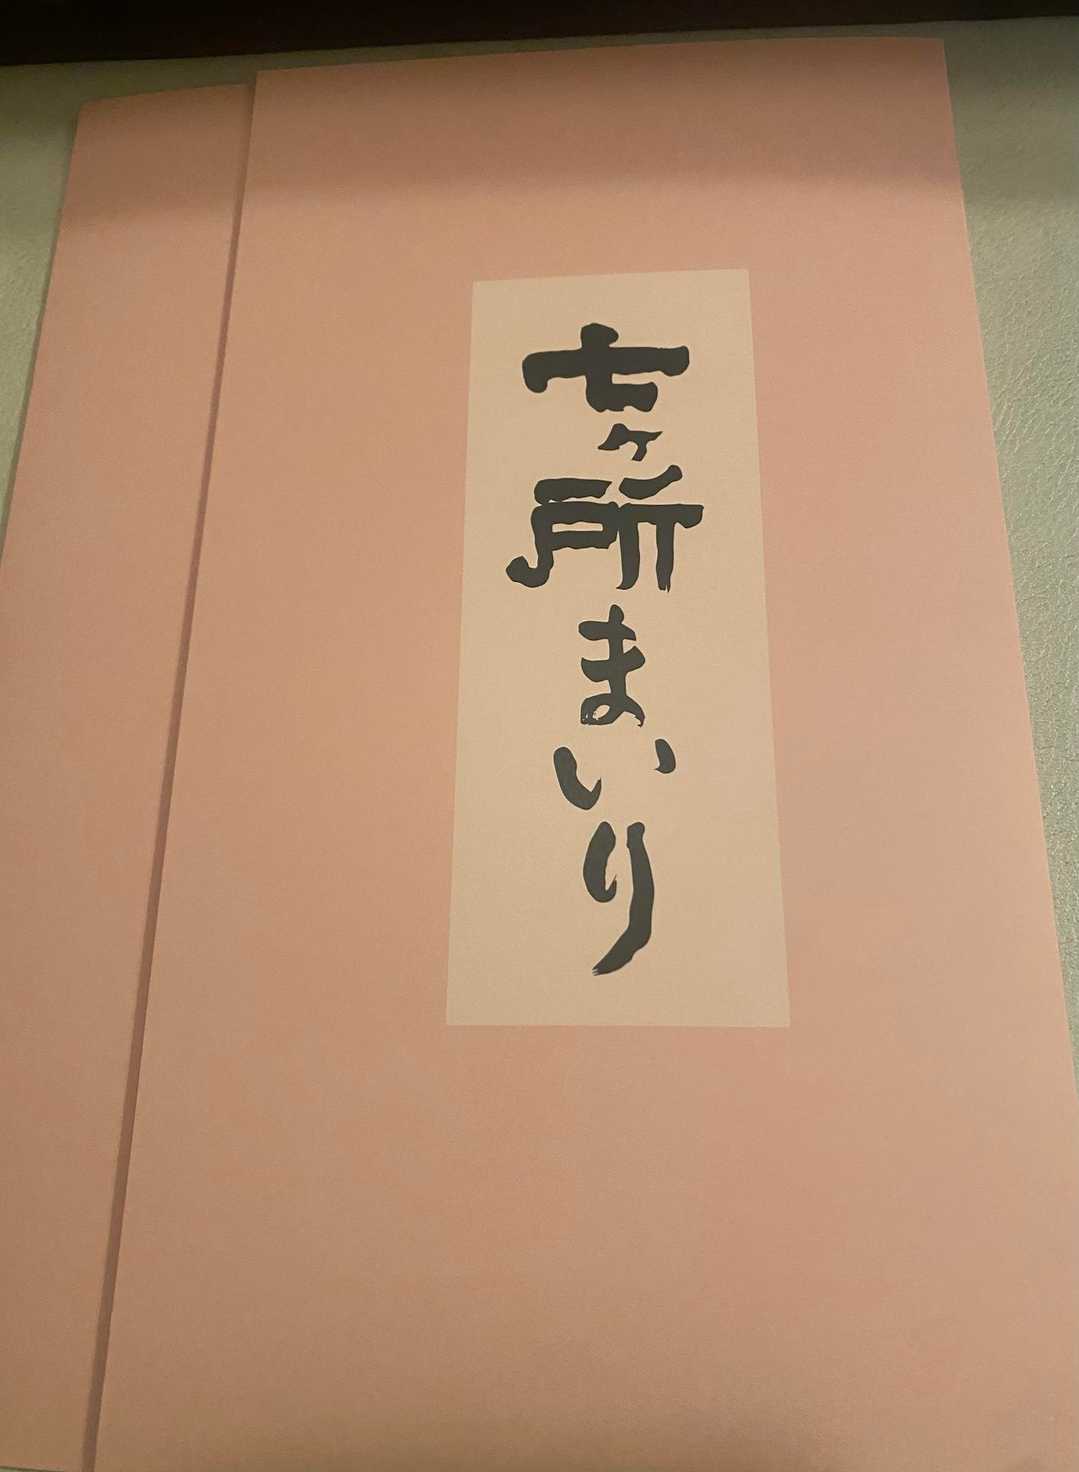 七ヶ所まいり